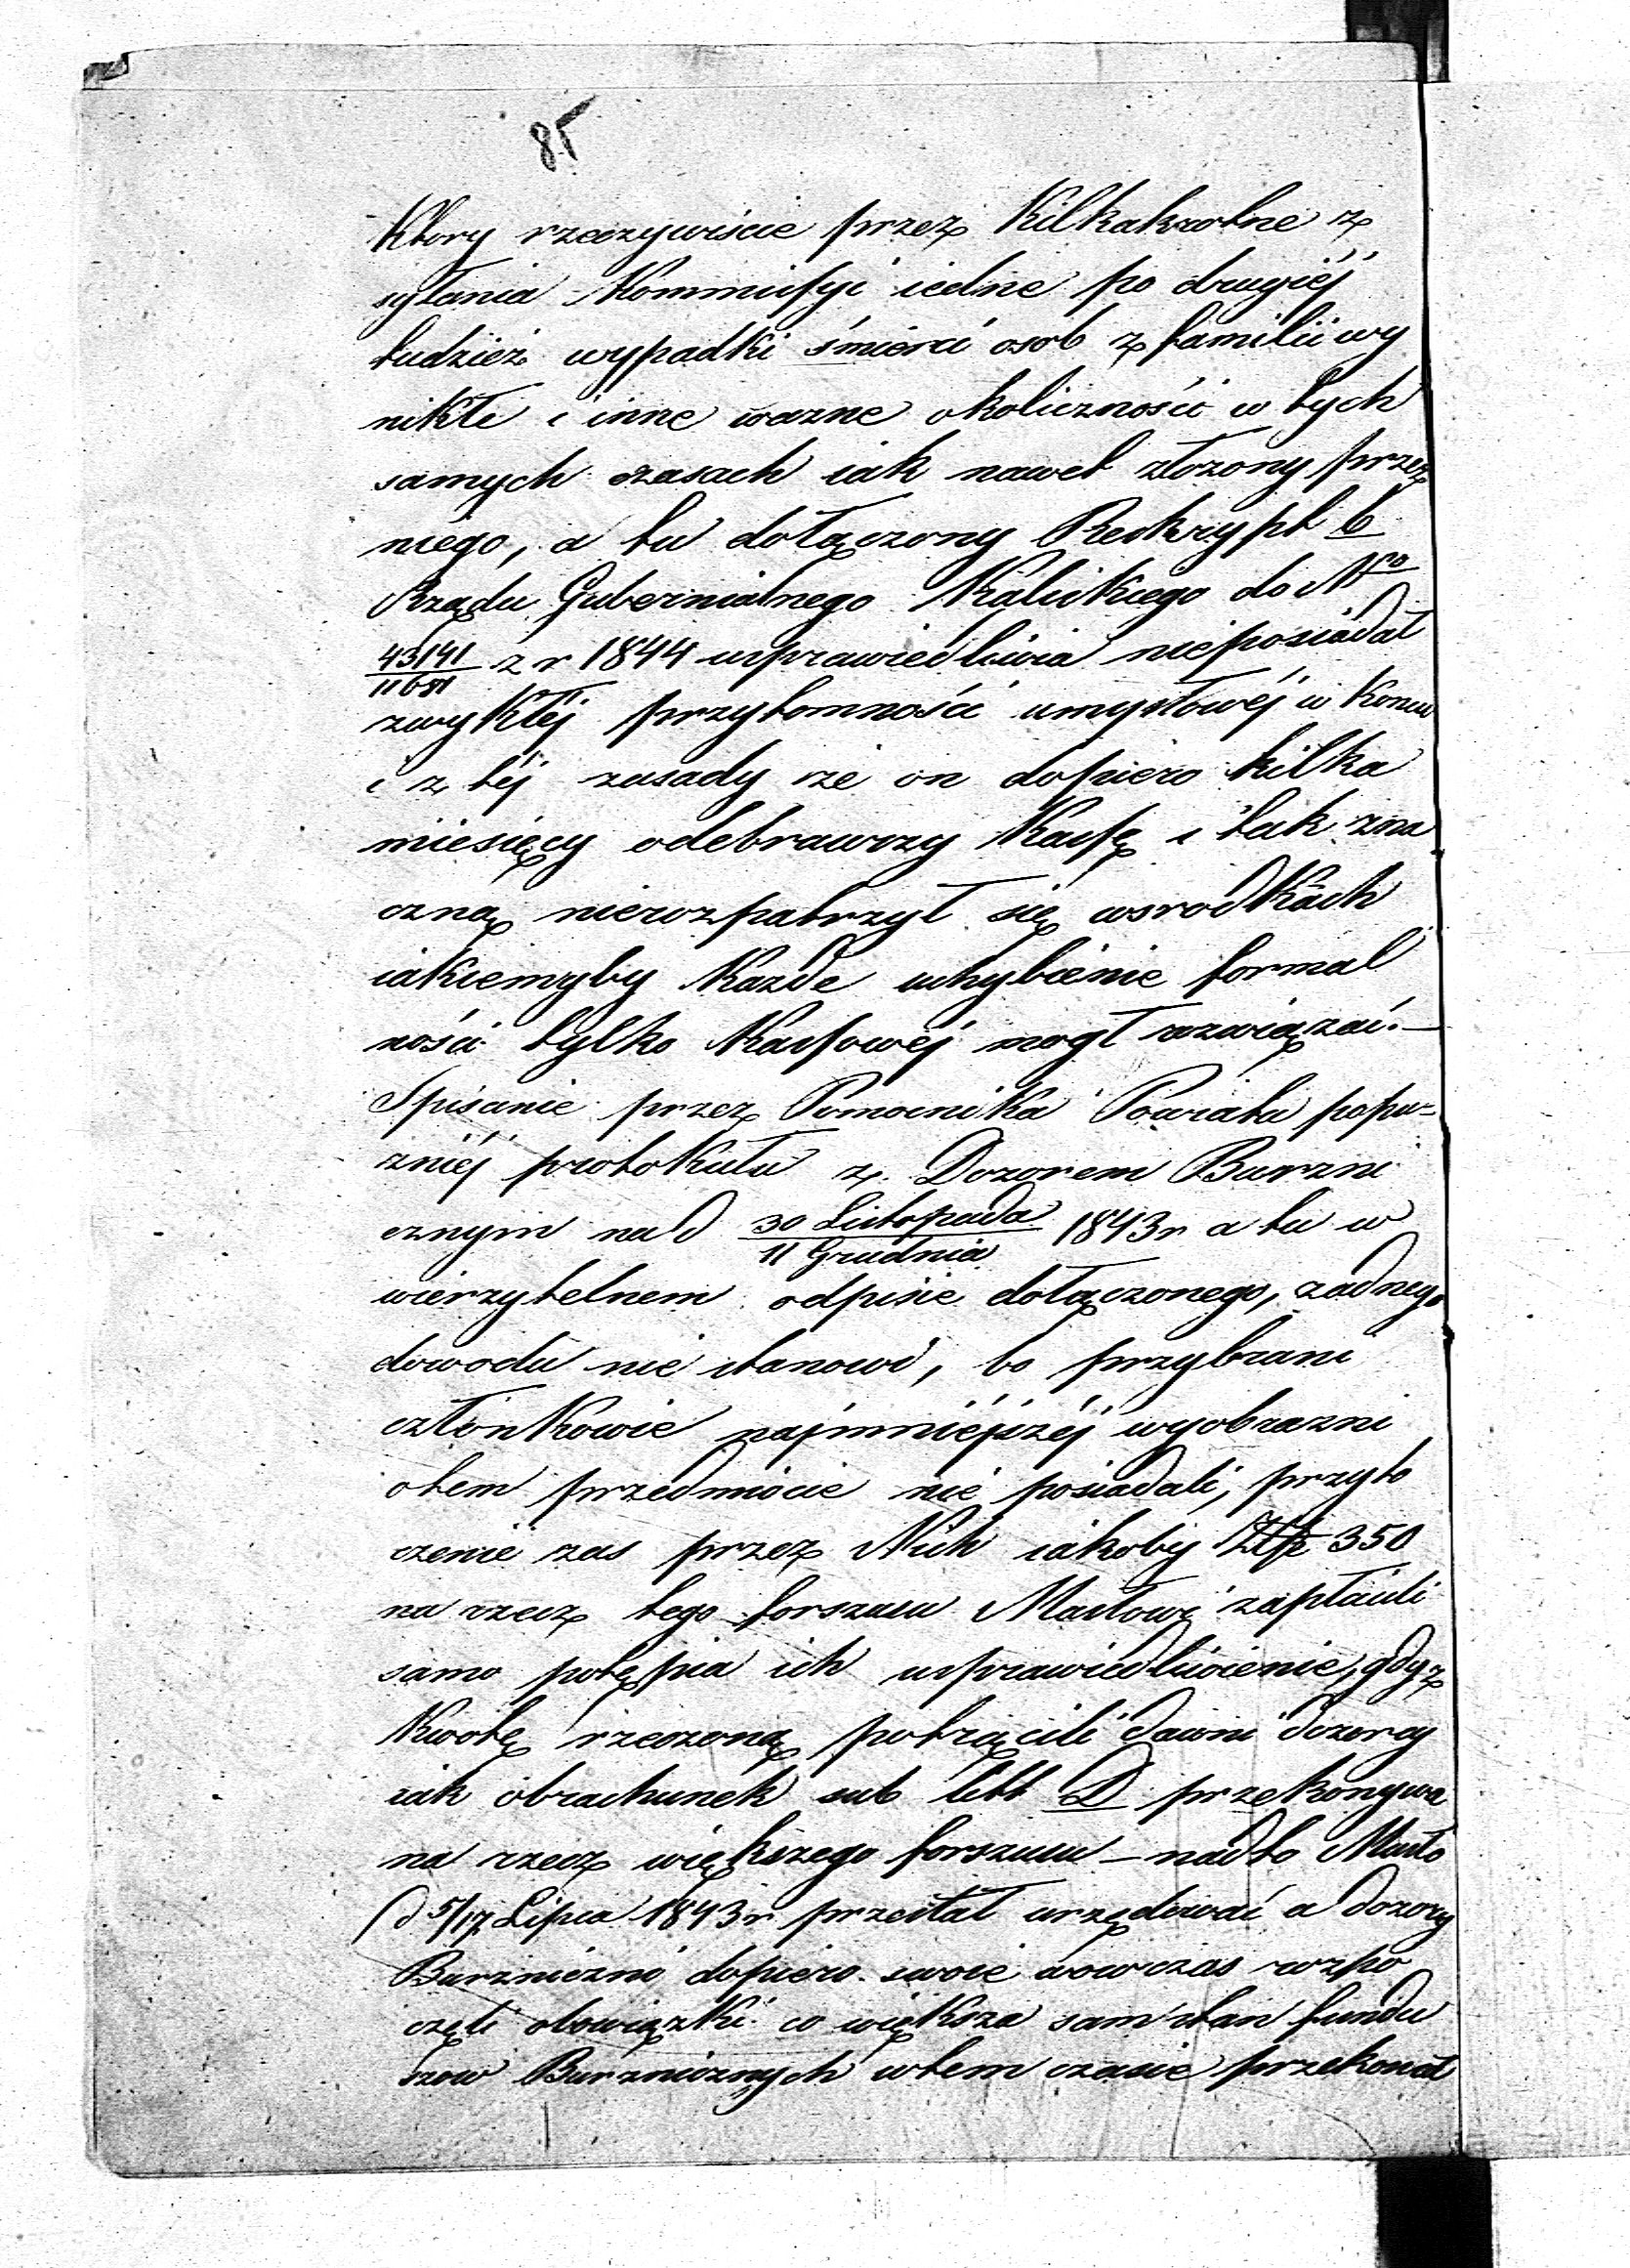 85
Ktory rzeczywiście przez Kilkakrotne z
sylania Kommissyi iedne po drugiéj
tudzież wypadki śmierci osob z familii wy
nikłe i inne wazne okoliczności w tych
samych czasach iak nawet złozony przez
niego, a tu dołączony Reskrypt C
Rządu Gubernialnego Kaliskiego do Nro
43141/11681 z r 1844 usprawiedliwia nieposiadał
zwykłéj przytomności umysłowéj w Koncu
i z téj zasady ze on dopiero kilka
miesięcy odebrawszy Kassę i tak zna
czną nierozpatrzył się wsrodkach
iakiemyby Kazde uchybienie formal
ności tylko Kassowéj mogł rozwiązać.—
Spisanie przez Pomocnika Powiatu popo=
zniéj protokułu z Dozorem Burzni
cznym na d 30 Listopada/11 Grudnia 1843r a tu w
wierzytelnem odpisie dołączonego, zadnego
dowodu nie stanowi, bo przybrani
członkowie najmniéjszéj wyobrazni
otem przedmiocie nie posiadali, przyto
czenie zas przez Nich iakoby Złp 350
na rzecz tego forszusu Masłowi zapłacili
samo potępia ich usprawiedliwienie, gdyz
Kwotę rzeczoną potrącili dawni dozorcy
iak obrachunek sub litt D przekonywa
na rzecz większego forszusu — nadto Masło
d 5/17 Lipca 1843r przestał urzędować a dozory
Burzniczni dopiero swoie wowczas rozpo
częli obowiązki co większa sam stan fundu
szow Burznicznych wtem czasie przekonał